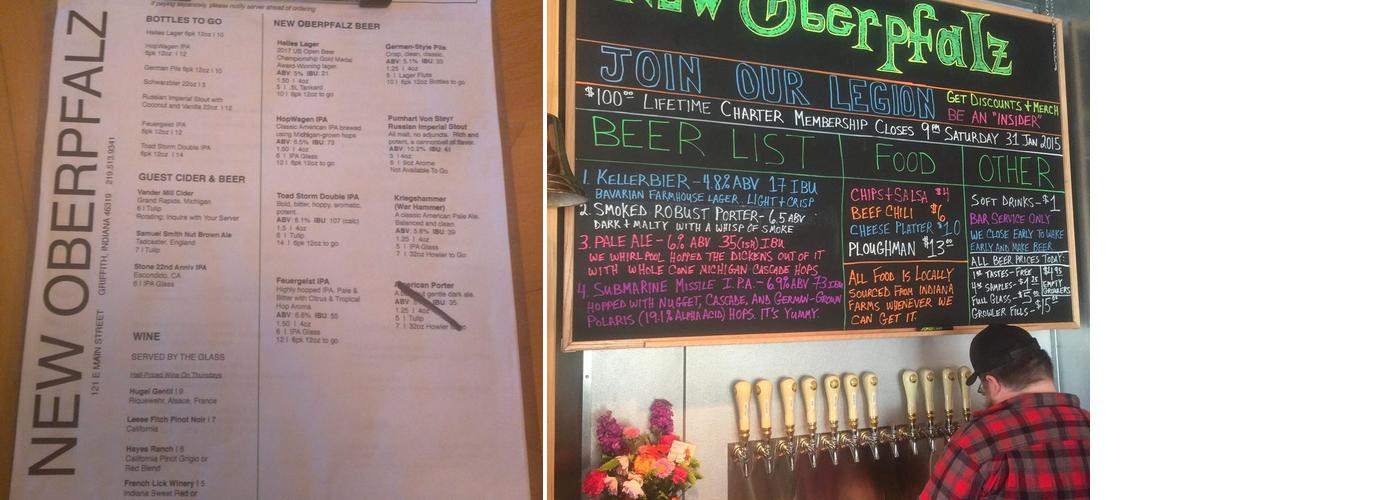 If paying separately, please notify server ahead of ordering
NEW OBERPFALZ
121 E MAIN STREET GRIFFITH, INDIANA 46319 219.513.9341
BOTTLES TO GO
Helles Lager 6pk 12oz I 10
HopWagen IPA
6pk 12oz I 12
German Pils 6pk 12oz I 10
Schwarzbier 22oz I 5
Russian Imperial Stout with
Coconut and Vanilla 22oz I 12
Feuergeist IPA
6pk 12oz I 12
Toad Storm Double IPA
6pk 12oz I 14
GUEST CIDER & BEER
Vander Mill Cider
Grand Rapids, Michigan
6 I Tulip
Rotating, Inquire with Your Server
Samuel Smith Nut Brown Ale
Tadcaster, England
7 I Tulip
Stone 22nd Anniv IPA
Escondido, CA
6 I IPA Glass
WINE
SERVED BY THE GLASS
Half-Priced Wine On Thursdays
Hugel Gentil I 9
Riquewehr, Alsace, France
Leese Fitch Pinot Noir I 7
California
Hayes Ranch I 6
California Pinot Grigio or
Red Blend
French Lick Winery I 5
Indiana Sweet Red or
NEW OBERPFALZ BEER
Helles Lager
2017 US Open Beer
Championship Gold Medal
Award-Winning lager.
ABV: 5% IBU: 21
1.50 I 4oz
5 I .5L Tankard
10 I 6pk 12oz to go
HopWagen IPA
Classic American IPA brewed
using Michigan-grown hops
ABV: 6.5% IBU: 73
1.50 I 4oz
6 I IPA Glass
12 I 6pk 12oz to go
Toad Storm Double IPA
Bold, bitter, hoppy, aromatic,
potent.
ABV: 8.1% IBU: 107 (calc)
1.5 I 4oz
6 I Tulip
14 I 6pk 12oz to go
Feuergeist IPA
Highly hopped IPA. Pale &
Bitter with Citrus & Tropical
Hop Aroma
ABV: 6.6% IBU: 55
1.50 I 4oz
6 I IPA Glass
12 I 6pk 12oz to go
German-Style Pils
Crisp, clean, classic.
ABV: 5.1% IBU: 33
1.25 I 4oz
5 I Lager Flute
10 I 6pk 12oz Bottles to go
Pumhart Von Steyr
Russian Imperial Stout
All malt, no adjuncts. Rich and
potent, a cannonball of flavor.
ABV: 10.2% IBU: 41
3 I 4oz
6 I 9oz Arome
Not Available To Go
Kriegshammer
(War Hammer)
A classic American Pale Ale.
Balanced and clean.
ABV: 5.8% IBU: 39
1.25 I 4oz
5 I Tulip
7 I 32oz Howler to go
American Porter
A gentle dark ale.
ABV: IBU: 35
1.25 I 4oz
5 I Tulip
7 I 32oz Howler to go
NEW OBERPFALZ
JOIN OUR LEGION
GET DISCOUNTS + MERCH
BE AN "INSIDER"
$100.00 LIFETIME CHARTER MEMBERSHIP CLOSES 9PM SATURDAY 31 JAN 2015
BEER LIST
1. KELLERBIER - 4.8% ABV 17 IBU
BAVARIAN FARMHOUSE LAGER. LIGHT + CRISP
2. SMOKED ROBUST PORTER - 6.5 ABV
DARK + MALTY WITH A WHISP OF SMOKE
3. PALE ALE - 6% ABV 35(ISH) IBU
WE WHIRLPOOL HOPPED THE DICKENS OUT OF IT
WITH WHOLE CONE MICHIGAN CASCADE HOPS
4. SUBMARINE MISSILE I.P.A. - 6.9% ABV 73 IBU
HOPPED WITH NUGGET, CASCADE, AND GERMAN-GROWN
POLARIS (19.1% ALPHA ACID) HOPS. IT'S YUMMY.
FOOD
CHIPS + SALSA $4
BEEF CHILI $6
CHEESE PLATTER $10
PLOUGHMAN $13.00
ALL FOOD IS LOCALLY
SOURCED FROM INDIANA
FARMS WHENEVER WE
CAN GET IT.
OTHER
SOFT DRINKS - $1
BAR SERVICE ONLY
WE CLOSE EARLY TO WAKE
EARLY AND MAKE BEER
ALL BEER PRICES TODAY:
1oz TASTES - FREE
4oz SAMPLES - $1.25
FULL GLASS - $5.00
GROWLER FILLS - $15
$4.95
EMPTY
GROWLERS